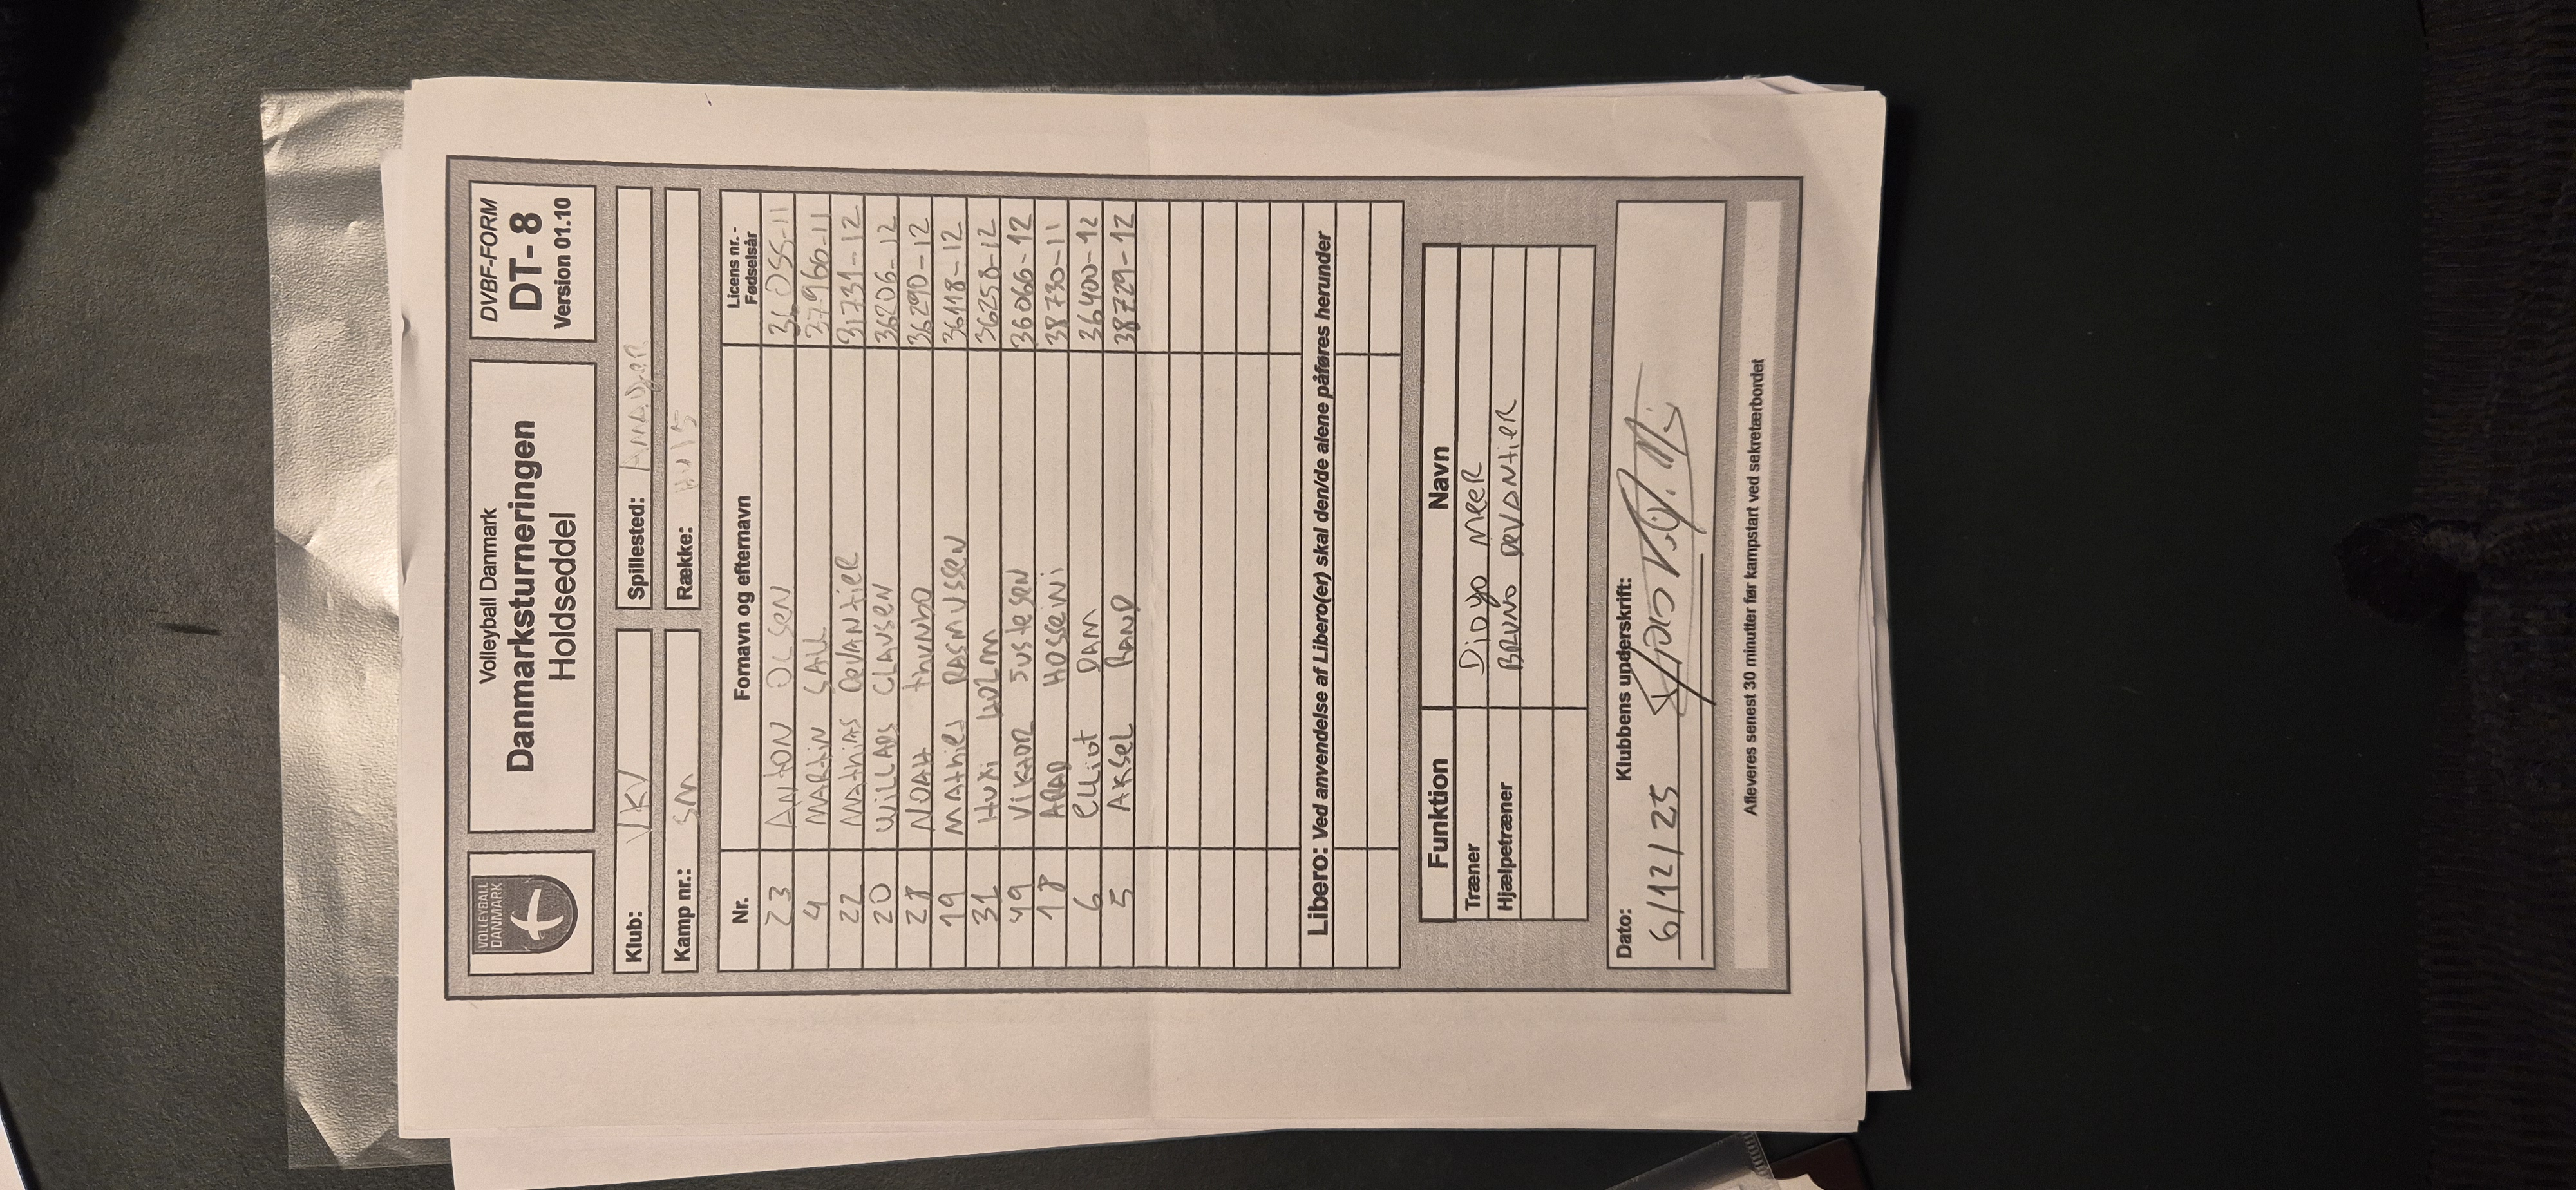 VOLLEYBALL
DANMARK
Volleyball Danmark
Danmarksturneringen
Holdseddel
DVBF-FORM
DT- 8
Version 01.10
Klub: VKV
Spillested: AMAGER
Kamp nr.: SM
Række: HU15
Nr. Fornavn og efternavn Licens nr. - Fødselsår
23 ANTON OLSEN 36055-11
4 MARTIN SALL 37960-11
22 MATHIAS DEVANTIER 31731-12
20 WILLADS CLAUSEN 36206-12
28 NOAH THUNBO 36290-12
19 MATHIES RASMUSSEN 36118-12
31 HUXI HOLM 36258-12
49 VIKTOR JUSTESEN 36066-12
18 ARAD HOSSEINI 38730-11
6 ELLIOT DAM 36400-12
5 AKSEL RAND 38729-12
Libero: Ved anvendelse af Libero(er) skal den/de alene påføres herunder
Funktion Navn
Træner DIDYO MEER
Hjælpetræner BRUNO DEVANTIER
Dato: Klubbens underskrift:
6/12/25
Afleveres senest 30 minutter før kampstart ved sekretærbordet